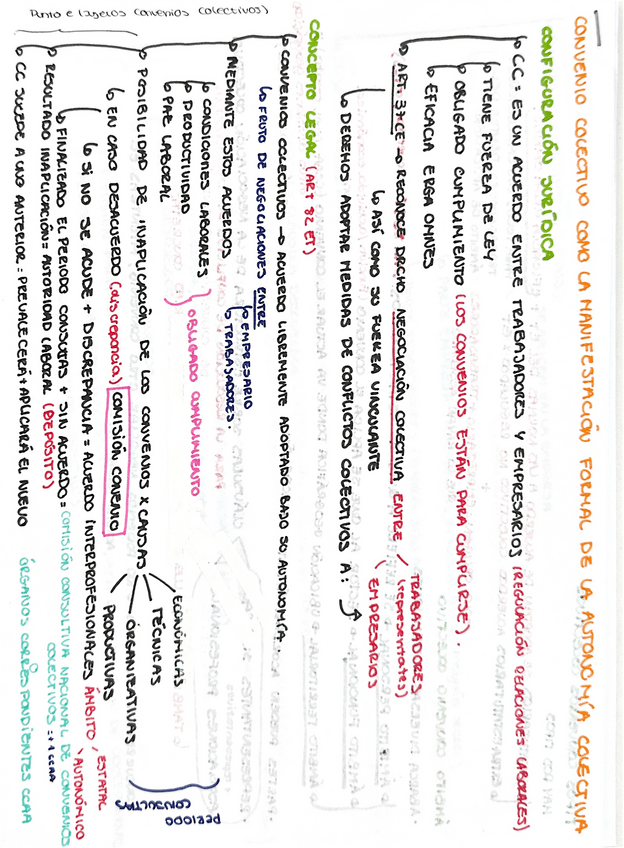 CONVENIO COLECTIVO COMO LA MANIFESTACIÓN FORMAL DE LA AUTONOMÍA COLECTIVA
CONFIGURACIÓN JURÍDICA
CC = ES UN ACUERDO ENTRE TRABAJADORES Y EMPRESARIOS (REGULACIÓN RELACIONES LABORALES)
TIENE FUERZA DE LEY
OBLIGADO CUMPLIMIENTO (LOS CONVENIOS ESTÁN PARA CUMPLIRSE).
EFICACIA ERGA OMNES
ART. 37 CE → RECONOCE DRCHO NEGOCIACIÓN COLECTIVA ENTRE / TRABAJADORES
(representantes)
EMPRESARIOS
ASÍ COMO SU FUERZA VINCULANTE
DEBEMOS ADOPTAR MEDIDAS DE CONFLICTOS COLECTIVOS A:
CONCEPTO LEGAL (ART 82 ET)
CONVENIOS COLECTIVOS → ACUERDO LIBREMENTE ADOPTADO BAJO SU AUTONOMÍA.
FRUTO DE NEGOCIACIONES ENTRE
EMPRESARIO
TRABAJADORES
MEDIANTE ESTOS ACUERDOS
CONDICIONES LABORALES
PRODUCTIVIDAD
PAZ LABORAL
OBLIGADO CUMPLIMIENTO
POSIBILIDAD DE INAPLICACIÓN DE LOS CONVENIOS X CAUSAS
ECONÓMICAS
TÉCNICAS
ORGANIZATIVAS
PRODUCTIVAS
PERIODO
CONSULTAS
EN CASO DESACUERDO (discrepancia) COMISIÓN CONVENIO
SI NO SE ACUDE + DISCREPANCIA = ACUERDO INTERPROFESIONALES ÁMBITO / ESTATAL
AUTONÓMICO
FINALIZADO EL PERIODO CONSULTAS + SIN ACUERDO = COMISIÓN CONSULTIVA NACIONAL DE CONVENIOS
COLECTIVOS
RESULTADO INAPLICACIÓN = AUTORIDAD LABORAL (DEPÓSITO)
ÓRGANOS CORRESPONDIENTES CCAA
CC SUCEDE A UNO ANTERIOR = PREVALECERÁ + APLICARÁ EL NUEVO
convenios colectivos)